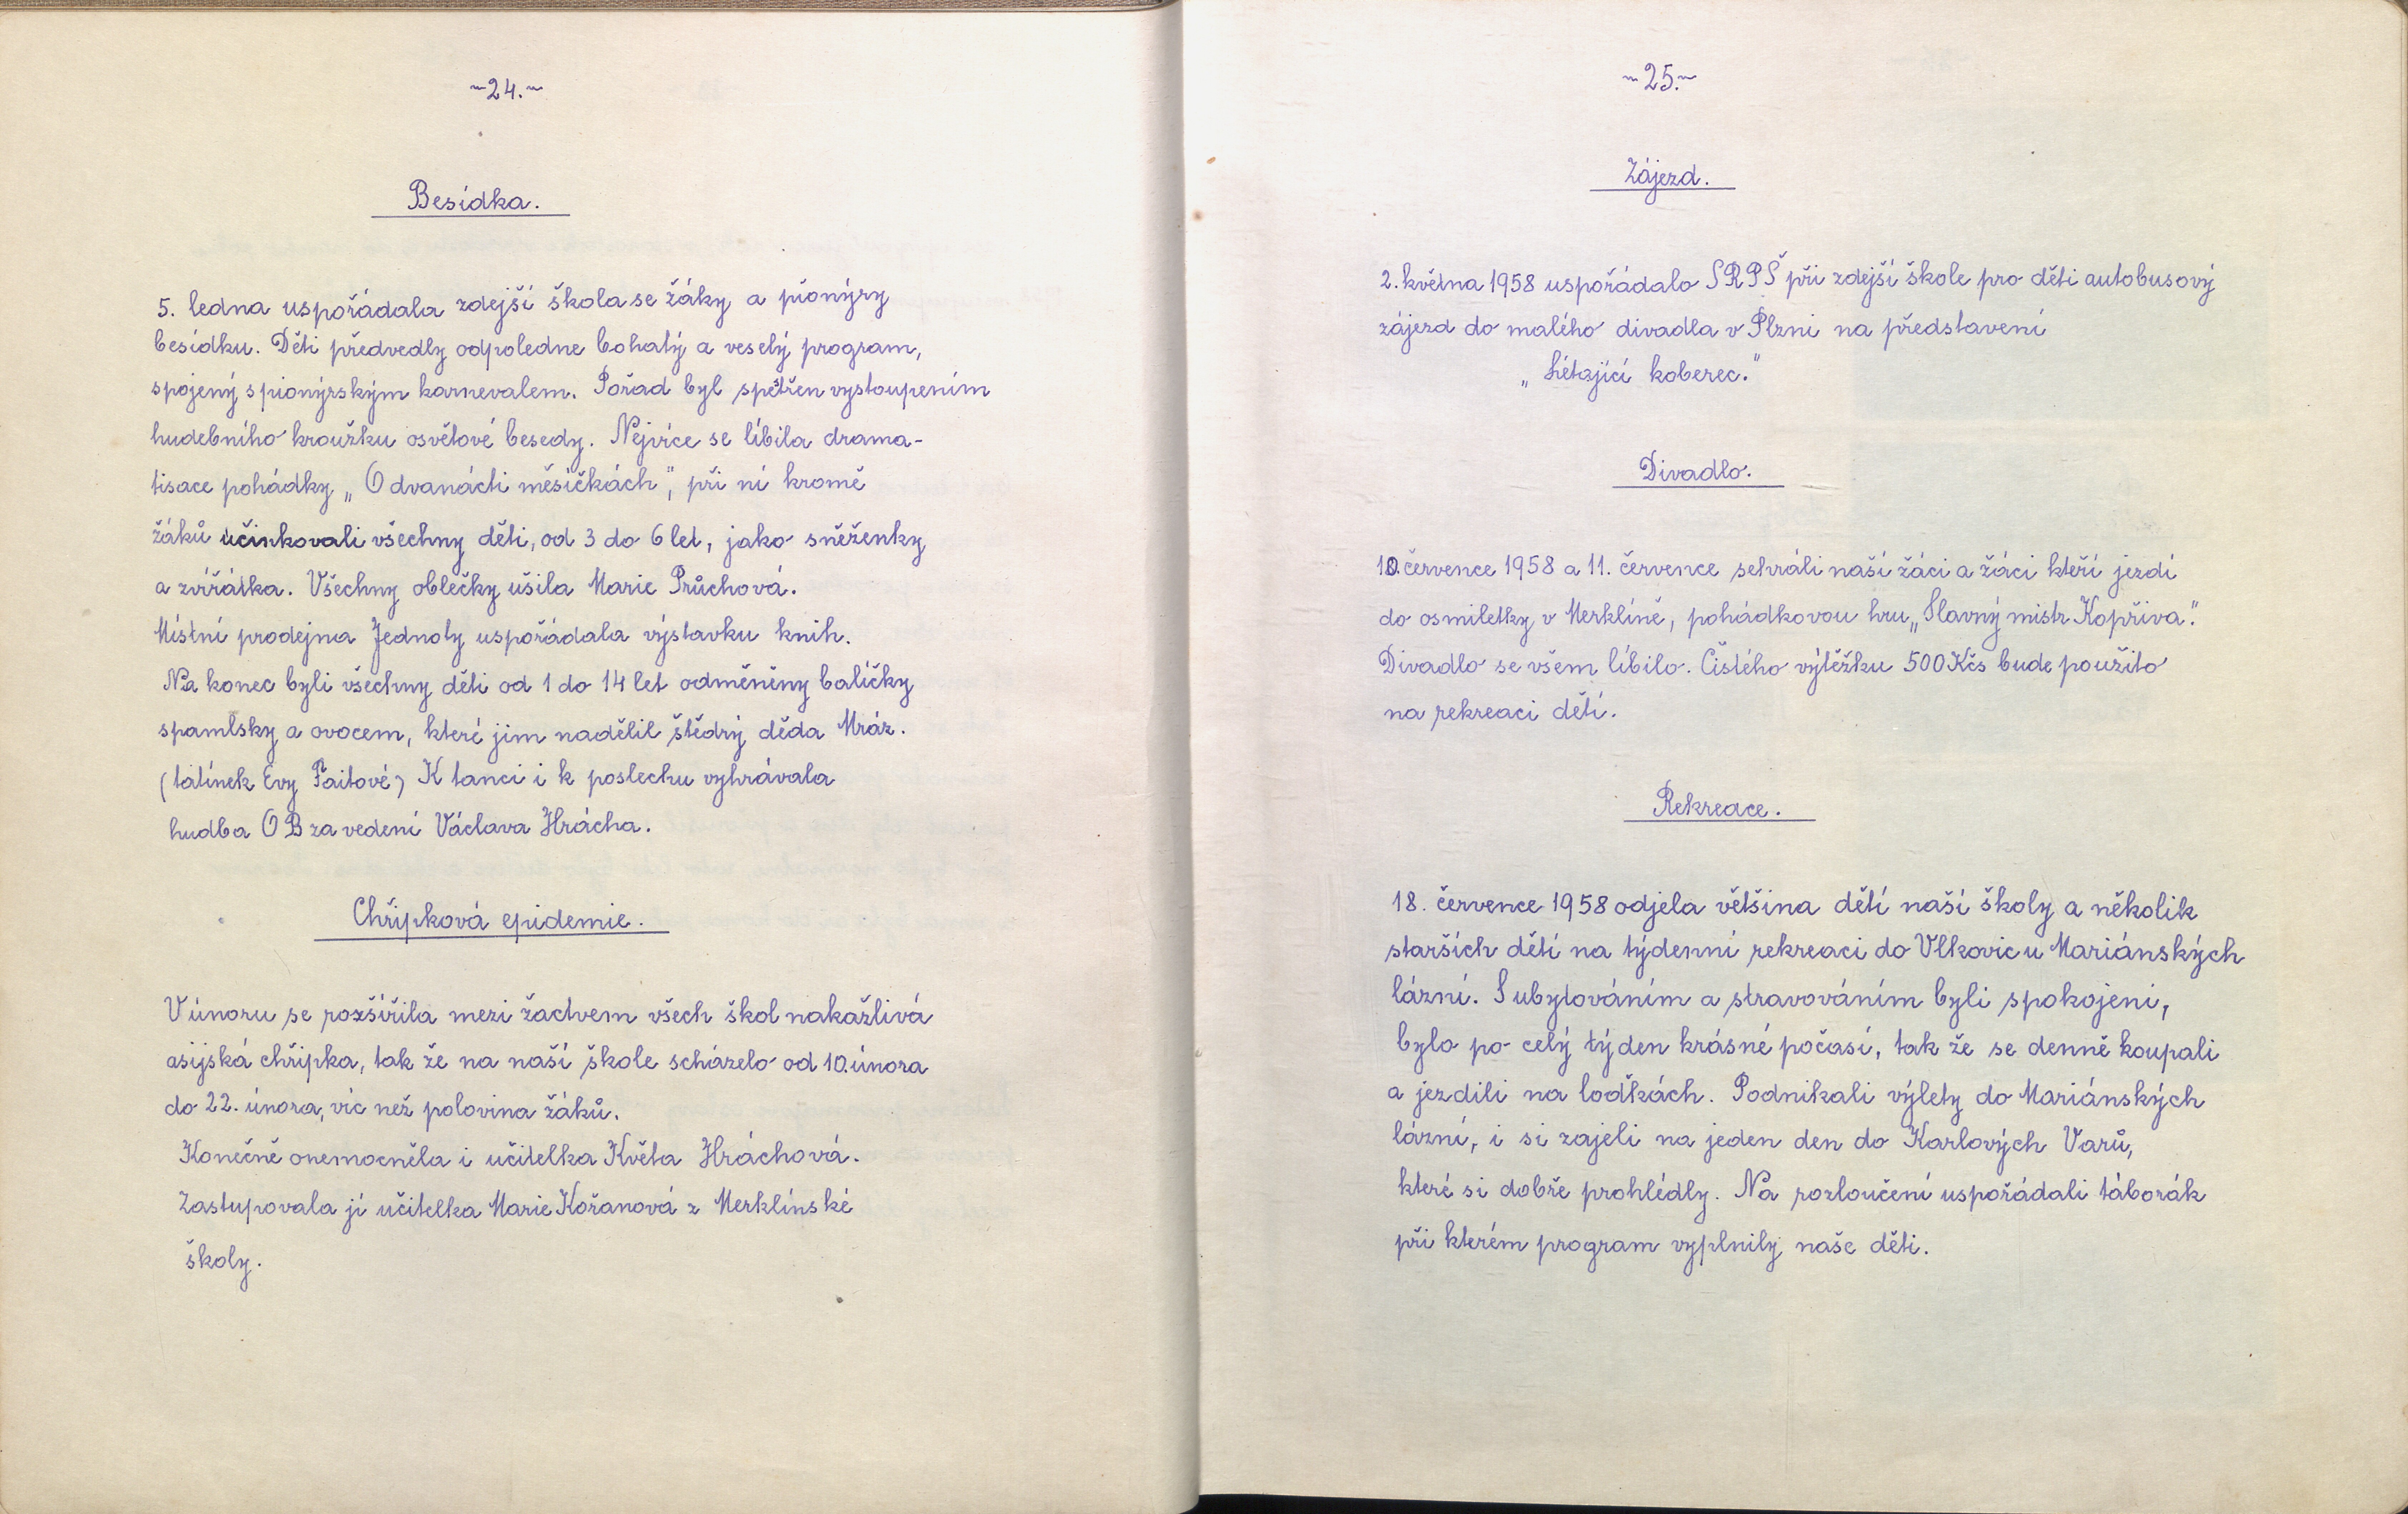 ~24.~
Besídka.
5. ledna uspořádala zdejší škola se žáky a pionýry
besídku. Děti předvedly odpoledne bohatý a veselý program,
spojený s pionýrským karnevalem. Pořad byl spestřen vystoupením
hudebního kroužku osvětové besedy. Nejvíce se líbila drama-
tisace pohádky „O dvanácti měsíčkách", při ní kromě
žáků účinkovali všechny děti, od 3 do 6 let, jako sněženky
a zvířátka. Všechny oblečky ušila Marie Průchová.
Místní prodejna Jednoty uspořádala výstavku knih.
Na konec byli všechny děti od 1 do 14 let odměněny balíčky
s pamlsky a ovocem, které jim nadělil štědrý děda Mráz.
(tatínek Evy Faitové) K tanci i k poslechu vyhrávala
hudba OB za vedení Václava Hrácha.
Chřipková epidemie.
V únoru se rozšířila mezi žactvem všech škol nakažlivá
asijská chřipka, tak že na naší škole scházelo od 10. února
do 22. února, víc než polovina žáků.
Konečně onemocněla i učitelka Květa Hráchová.
Zastupovala ji učitelka Marie Kořanová z Merklínské
školy.
~25.~
Zájezd.
2. května 1958 uspořádalo SRPŠ při zdejší škole pro děti autobusový
zájezd do malého divadla v Plzni na představení
„Létající koberec."
Divadlo.
10. července 1958 a 11. července sehráli naší žáci a žáci kteří jezdí
do osmiletky v Merklíně, pohádkovou hru „Slavný mistr Kopřiva."
Divadlo se všem líbilo. Čistého výtěžku 500 Kčs bude použito
na rekreaci dětí.
Rekreace.
18. července 1958 odjela většina dětí naší školy a několik
starších dětí na týdenní rekreaci do Vlkovic u Mariánských
lázní. S ubytováním a stravováním byli spokojeni,
bylo po celý týden krásné počasí, tak že se denně koupali
a jezdili na loďkách. Podnikali výlety do Mariánských
lázní, i si zajeli na jeden den do Karlových Varů,
které si dobře prohlédly. Na rozloučení uspořádali táborák
při kterém program vyplnily naše děti.